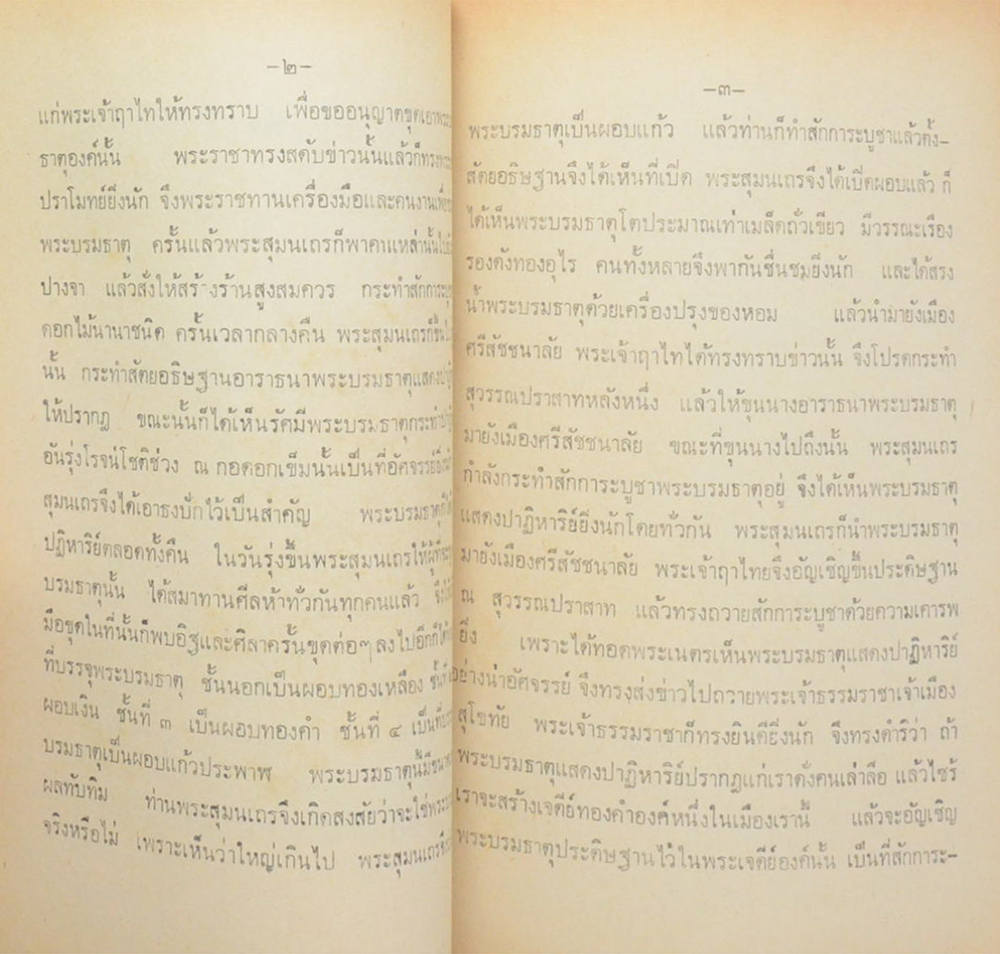 -๒-
แก่พระเจ้าฤาไทให้ทรงทราบ เพื่อขออนุญาตขุดเอาพระ
ธาตุองค์นั้น พระราชาทรงสดับข่าวนั้นแล้วก็ทรง
ปราโมทย์ยิ่งนัก จึงพระราชทานเครื่องมือและคนงานเพื่อ
พระบรมธาตุ ครั้นแล้วพระสุมนเถรก็พาคนเหล่านั้นไป
ปางจา แล้วสั่งให้สร้างร้านสูงสมควร กระทำสักการะ
ดอกไม้นานาชนิด ครั้นเวลากลางคืน พระสุมนเถรก็ขึ้น
นั้น กระทำสัตยอธิษฐานอาราธนาพระบรมธาตุแสดง
ให้ปรากฎ ขณะนั้นก็ได้เห็นรัศมีพระบรมธาตุกระทำ
อันรุ่งโรจน์โชติช่วง ณ กอดอกเข็มนั้นเป็นที่อัศจรรย์
สุมนเถรจึงได้เอาธงปักไว้เป็นสำคัญ พระบรมธาตุ
ปฏิหาริย์ตลอดทั้งคืน ในวันรุ่งขึ้นพระสุมนเถรให้ผู้
บรมธาตุนั้น ได้สมาทานศีลห้าทั่วกันทุกคนแล้ว
มือขุดในที่นั้นก็พบอิฐและศิลาครั้นขุดต่อๆลงไปอีกก็
ที่บรรจุพระบรมธาตุ ชั้นนอกเป็นผอบทองเหลือง
ผอบเงิน ชั้นที่ ๓ เป็นผอบทองคำ ชั้นที่ ๔ เป็น
บรมธาตุเป็นผอบแก้วประพาฬ พระบรมธาตุนี้มี
ผลทับทิม ท่านพระสุมนเถรจึงเกิดสงสัยว่าจะใช่พระ
จริงหรือไม่ เพราะเห็นว่าใหญ่เกินไป พระสุมนเถร
-๓-
พระบรมธาตุเป็นผอบแก้ว แล้วท่านก็ทำสักการะบูชาแล้วตั้ง-
สัตยอธิษฐานจึงได้เห็นที่เปิด พระสุมนเถรจึงได้เปิดผอบแล้ว ก็
ได้เห็นพระบรมธาตุโตประมาณเท่าเมล็ดถั่วเขียว มีวรรณะเรือง
รองดังทองอุไร คนทั้งหลายจึงพากันชื่นชมยิ่งนัก และได้สรง
น้ำพระบรมธาตุด้วยเครื่องปรุงของหอม แล้วนำมายังเมือง
ศรีสัชชนาลัย พระเจ้าฤาไทได้ทรงทราบข่าวนั้น จึงโปรดกระทำ
สุวรรณปราสาทหลังหนึ่ง แล้วให้ขุนนางอาราธนาพระบรมธาตุ
มายังเมืองศรีสัชชนาลัย ขณะที่ขุนนางไปถึงนั้น พระสุมนเถร
กำลังกระทำสักการะบูชาพระบรมธาตุอยู่ จึงได้เห็นพระบรมธาตุ
แสดงปาฏิหาริย์ยิ่งนักโดยทั่วกัน พระสุมนเถรก็นำพระบรมธาตุ
มายังเมืองศรีสัชชนาลัย พระเจ้าฤาไทยจึงอัญเชิญขึ้นประดิษฐาน
ณ สุวรรณปราสาท แล้วทรงถวายสักการะบูชาด้วยความเคารพ
ยิ่ง เพราะได้ทอดพระเนตรเห็นพระบรมธาตุแสดงปาฏิหาริย์
อย่างน่าอัศจรรย์ จึงทรงส่งข่าวไปถวายพระเจ้าธรรมราชาเจ้าเมือง
สุโขทัย พระเจ้าธรรมราชาก็ทรงยินดียิ่งนัก จึงทรงดำริว่า ถ้า
พระบรมธาตุแสดงปาฏิหาริย์ปรากฏแก่เราดั่งคนเล่าลือ แล้วไซร้
เราจะสร้างเจดีย์ทองคำองค์หนึ่งในเมืองเรานี้ แล้วจะอัญเชิญ
พระบรมธาตุประดิษฐานไว้ในพระเจดีย์องค์นั้น เป็นที่สักการะ-